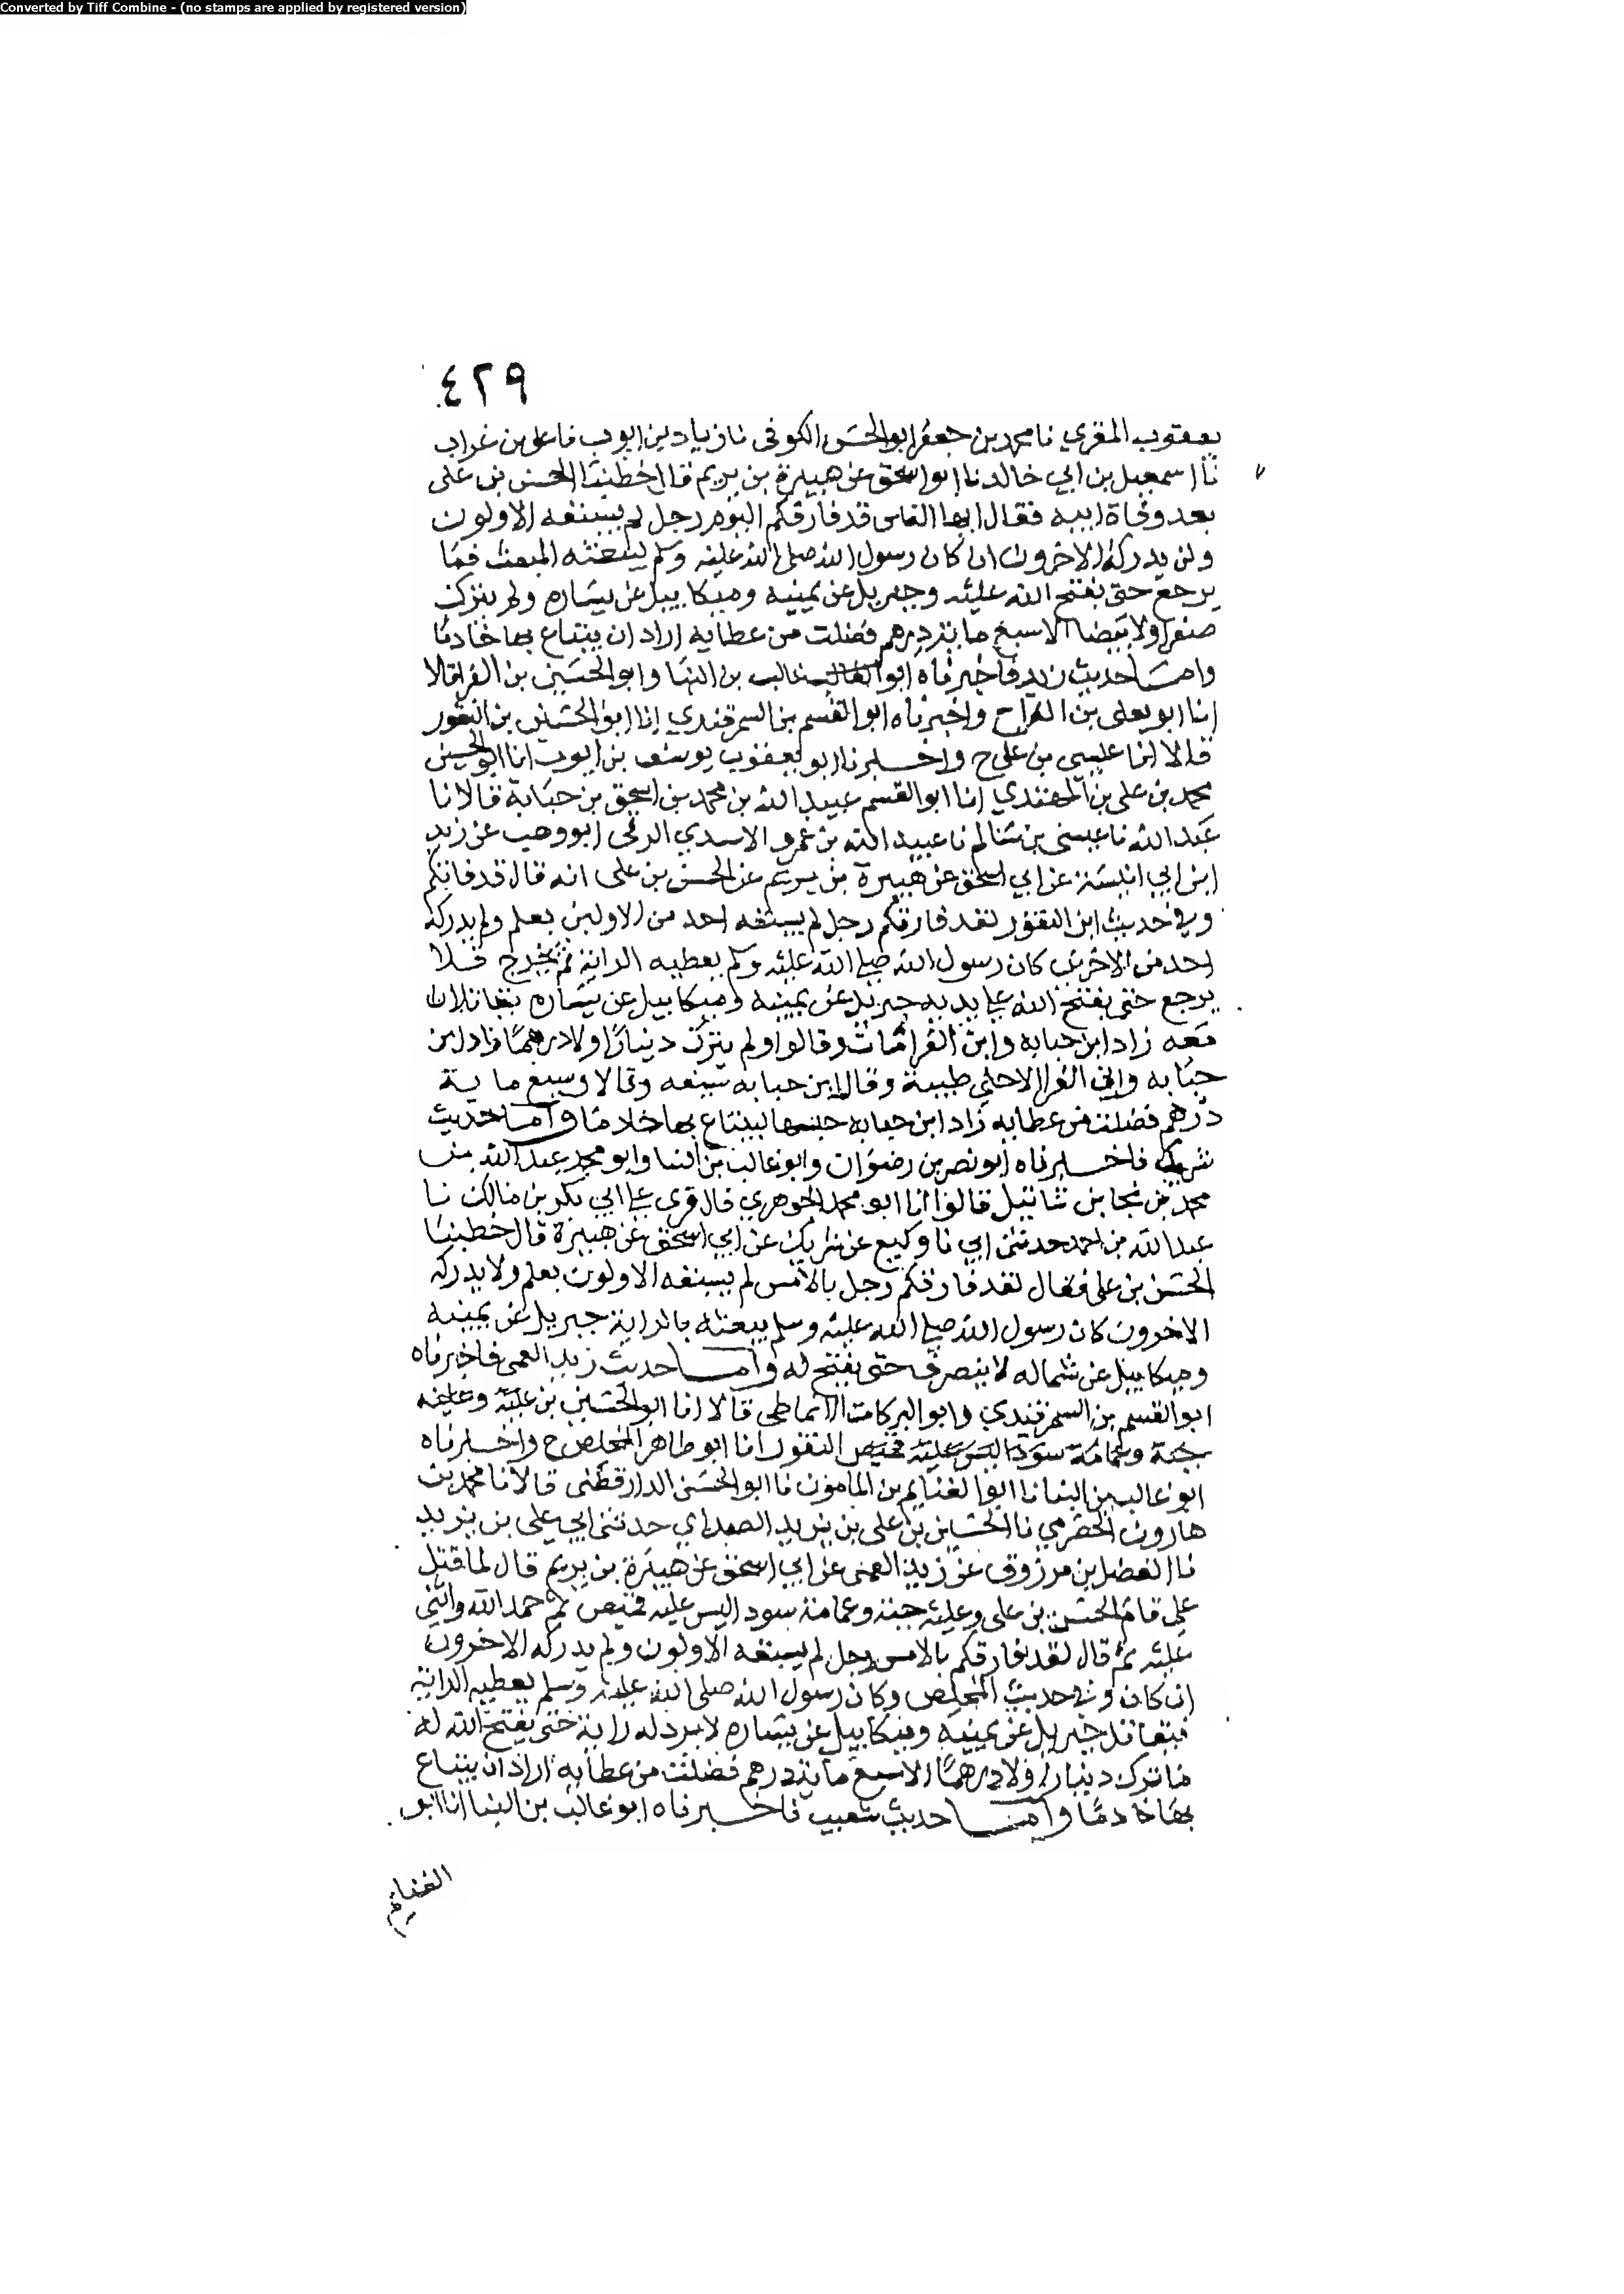 Converted by Tiff Combine - (no stamps are applied by registered version)
٤٢٩
يعقوب المقري نا محمد بن جعفر ابو الحسن الكوفي نا زياد بن ايوب نا علي بن غراب
نا اسمعيل بن ابي خالد نا ابو اسحق عن هبيرة بن يريم قال خطبنا الحسن بن علي
بعد وفاة ابيه فقال ايها الناس قد فارقكم اليوم رجل لم يسبقه الاولون
ولن يدركه الاخرون ان كان رسول الله صلى الله عليه وسلم يبعثه المبعث فما
يرجع حتى يفتح الله عليه وجبريل عن يمينه وميكاييل عن يساره ولم يترك
صفرا ولا بيضا الا سبع ماية درهم فضلت من عطايه اراد ان يبتاع بها خادما
واما حديث زيد فاخبرناه ابو غالب بن البنا وابو الحسين بن الفرا قالا
انا ابو يعلى بن الفرا ح واخبرناه ابو القسم بن السمرقندي انا ابو الحسين بن النقور
قالا انا عيسى بن علي ح واخبرنا ابو يعقوب يوسف بن ايوب انا ابو الحسين
محمد بن علي بن المهتدي انا ابو القسم عبيد الله بن محمد بن اسحق بن حبابة قالا نا
عبد الله نا عيسى بن سالم نا عبيد الله بن عمرو الاسدي الرقي ابو وهب عن زيد
ابن ابي انيسة عن ابي اسحق عن هبيرة بن يريم عن الحسن بن علي انه قال قد فاتكم
وفي حديث ابن النقور لقد فارقكم رجل لم يسبقه احد من الاولين بعلم ولم يدركه
احد من الاخرين كان رسول الله صلى الله عليه وسلم يعطيه الراية ثم يخرج فلا
يرجع حتى يفتح الله على يديه جبريل عن يمينه وميكاييل عن يساره يقاتلان
معه زاد ابن حبابه وابن الفرا مات وقالوا ولم يترك دينارا ولا درهما زاد ابن
حبابه وابن الفرا الا حلي طيبة وقال ابن حبابه سبعه وقالا وسبع ماية
درهم فضلت من عطايه زاد ابن حبابه حبسها ليبتاع بها خادما واما حديث
شريك فاخبرناه ابو نصر بن رضوان وابو غالب بن البنا وابو محمد عبد الله بن
محمد بن نجا بن شاتيل قالوا انا ابو محمد الجوهري قال قري على ابي بكر بن مالك نا
عبد الله بن احمد حدثني ابي نا وكيع عن شريك عن ابي اسحق عن هبيرة قال خطبنا
الحسن بن علي فقال لقد فارقكم رجل بالامس لم يسبقه الاولون بعلم ولا يدركه
الاخرون كان رسول الله صلى الله عليه وسلم يبعثه بالراية جبريل عن يمينه
وميكاييل عن شماله لا ينصرف حتى يفتح له واما حديث زيد العمي فاخبرناه
ابو القسم بن السمرقندي وابو البركات الانماطي قالا انا ابو الحسين بن
جبة وعمامة سودا ليس عليه قميص النقور انا ابو طاهر المخلص ح واخبرناه
ابو غالب بن البنا نا ابو الغنايم بن المامون نا ابو الحسن الدارقطني قالا نا محمد بن
هارون الحضرمي نا الحسين بن علي بن يزيد الصداي حدثني ابي علي بن يزيد
نا الفضل بن مرزوق عن زيد العمي عن ابي اسحق عن هبيرة بن يريم قال لما قتل
علي قام الحسن بن علي وعليه جبة وعمامة سودا ليس عليه قميص ثم حمد الله واثنى
عليه ثم قال لقد فارقكم بالامس رجل لم يسبقه الاولون ولم يدركه الاخرون
ان كان وفي حديث المخلص وكان رسول الله صلى الله عليه وسلم يعطيه الراية
فيقاتل جبريل عن يمينه وميكاييل عن يساره لا يرد له راية حتى يفتح الله له
ما ترك دينارا ولا درهما الا سبع ماية درهم فضلت من عطايه اراد ان يبتاع
بها خادما واما حديث شعيب فاخبرناه ابو غالب بن البنا انا ابو
الغنايم